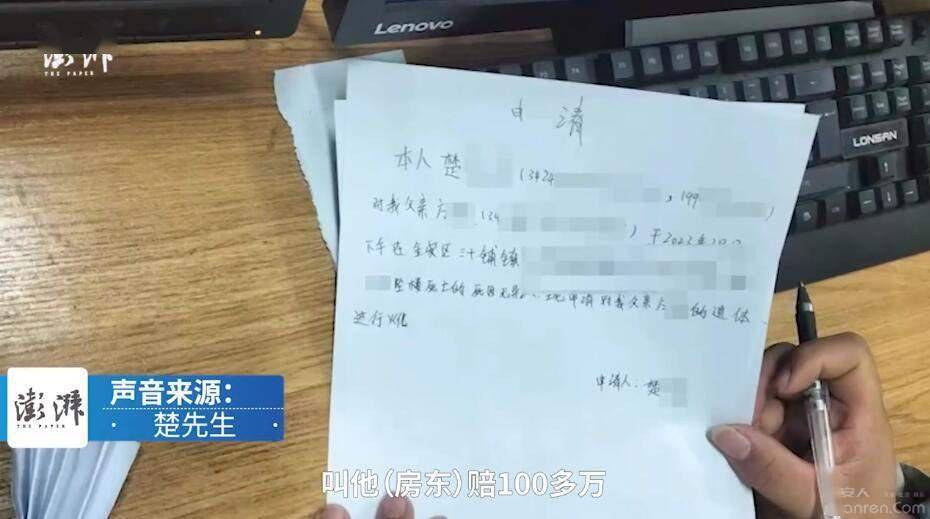 澎湃
THE PAPER
Lenovo
LONGSAN
申 请
本人 楚 (3424 , 199 )
对我父亲 (34 ) 于2023年
下午在金安区三十铺镇
坠楼死亡的死因无异议,现申请对我父亲 的遗体
进行火化
申请人:楚
澎湃
THE PAPER
声音来源:
楚先生
叫他(房东)赔100多万
安人
anren.Com